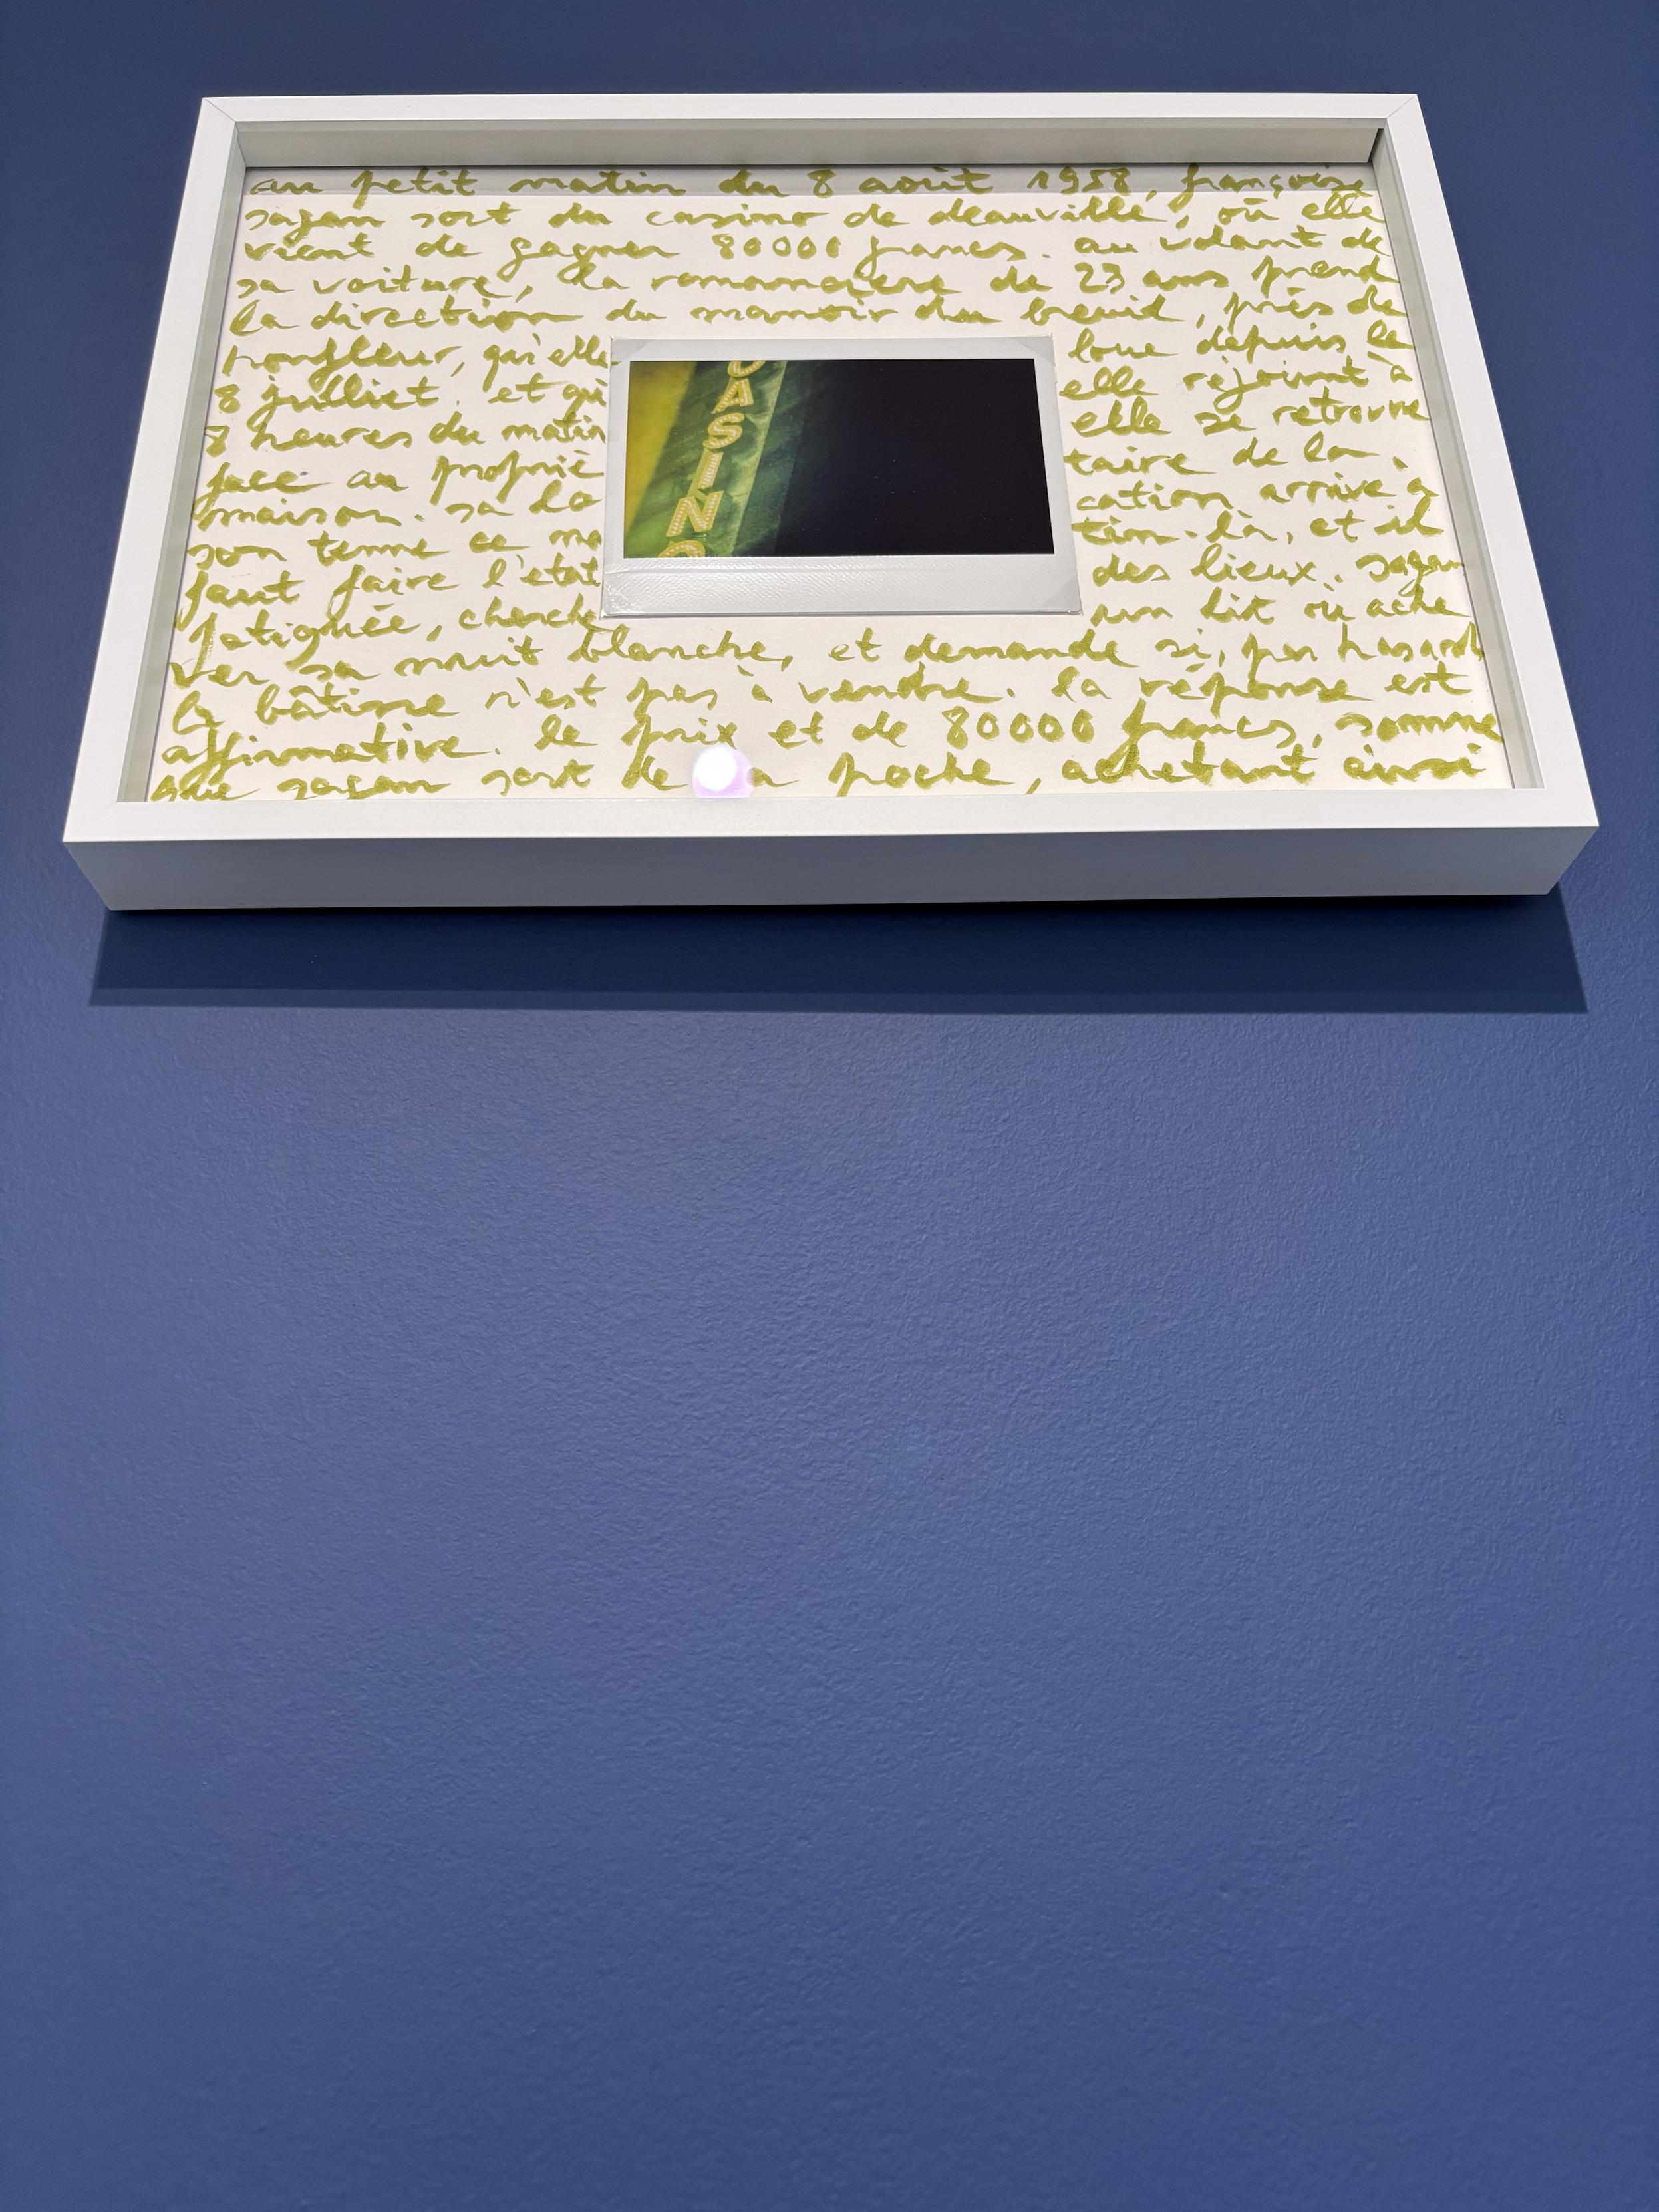 au petit matin du 8 août 1958, françoise
sagan sort du casino de deauville, où elle
vient de gagner 80000 francs. au volant de
sa voiture, la romancière de 23 ans prend
la direction du manoir du breuil, près de
honfleur, qu'elle loue depuis le
8 juillet. et qu' elle rejoint à
8 heures du matin elle se retrouve
face au proprié taire de la
maison. sa lo cation arrive à
son terme ce ma tin-là, et il
faut faire l'état des lieux. sagan,
fatiguée, cherche un lit où ache
ver sa nuit blanche, et demande si, par hasard
la bâtisse n'est pas à vendre. la réponse est
affirmative. le prix et de 80000 francs, somme
que sagan sort de a poche, achetant ainsi
CASINO